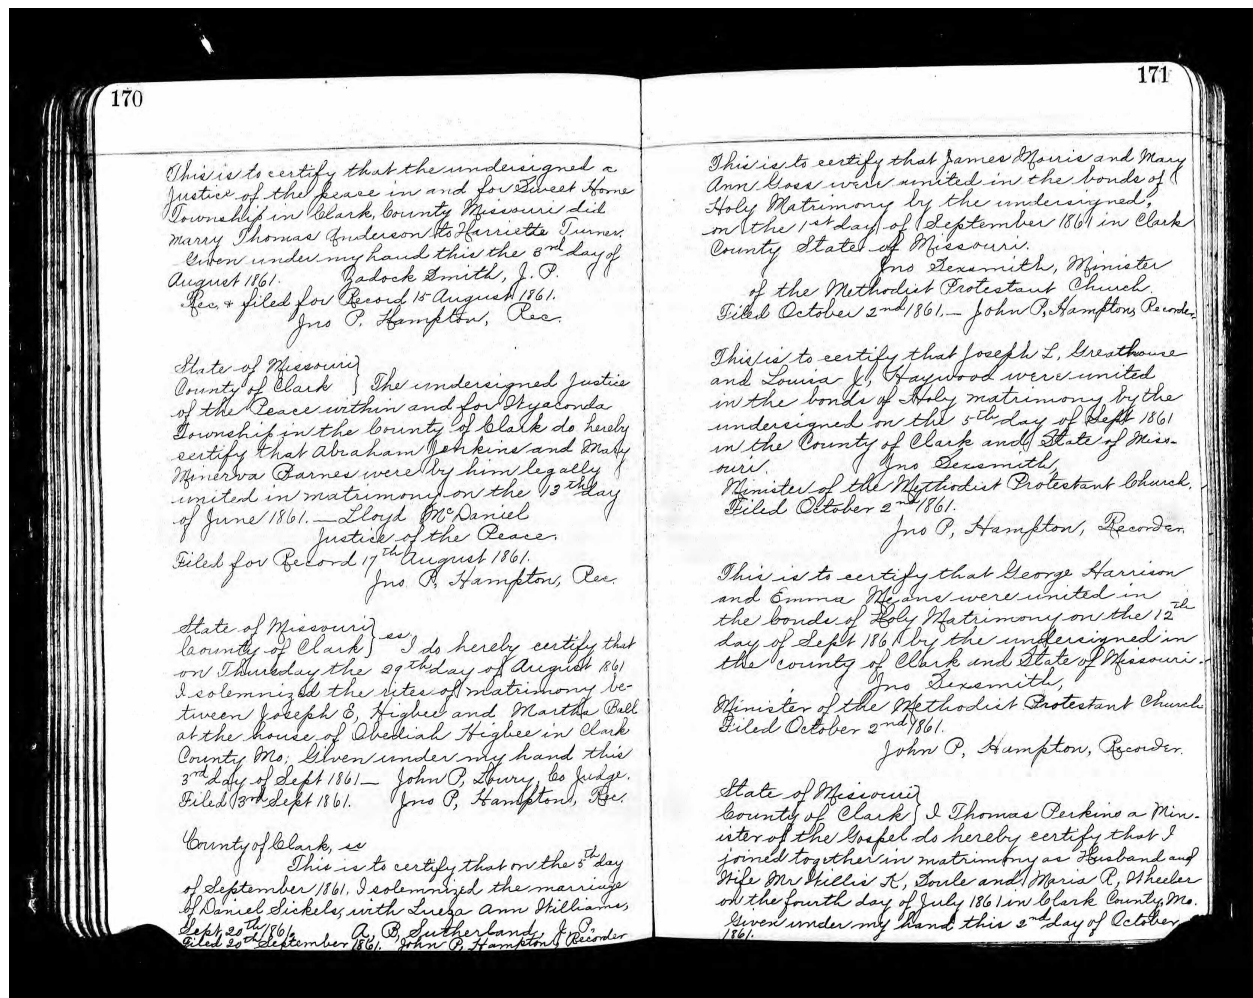 170
This is to certify that the undersigned a
Justice of the peace in and for Sweet Home
Township in Clark, County Missouri did
marry Thomas Anderson to Harriette Turner.
Given under my hand this the 3rd day of
August 1861. Zadock Smith, J. P.
Rec. & filed for Record 15 August 1861.
Jno P. Hampton, Rec.
State of Missouri }
County of Clark } The undersigned Justice
of the Peace within and for Wyaconda
Township in the County of Clark do hereby
certify that Abraham Jenkins and Mary
Minerva Barnes were by him legally
united in matrimony on the 13th day
of June 1861. — Lloyd McDaniel
Justice of the Peace.
Filed for Record 17th August 1861.
Jno P. Hampton, Rec.
State of Missouri } ss
County of Clark } I do hereby certify that
on Thursday the 29th day of August 1861
I solemnized the rites of matrimony be-
tween Joseph E. Higbee and Martha Ball
at the house of Obediah Higbee in Clark
County Mo. Given under my hand this
3rd day of Sept 1861 — John P, Co Judge.
Filed 3rd Sept 1861. Jno P, Hampton, Rec.
County of Clark, ss
This is to certify that on the 5th day
of September 1861. I solemnized the marriage
of Daniel Sickels, with Luesa Ann Williams,
Sept. 20th 1861. A, B, Sutherland, J. P.
Filed 20th September 1861. John P, Hampton, Recorder
171
This is to certify that James Morris and Mary
Ann Goss were united in the bonds of
Holy Matrimony by the undersigned,
on the 1st day of September 1861 in Clark
County State of Missouri.
Jno Sexsmith, Minister
of the Methodist Protestant Church.
Filed October 2nd 1861. — John P, Hampton, Recorder.
This is to certify that Joseph L. Greathouse
and Louisa J, Haywood were united
in the bonds of Holy matrimony by the
undersigned on the 5th day of Sept 1861
in the County of Clark and State of Miss-
ouri. Jno Sexsmith,
Minister of the Methodist Protestant Church.
Filed October 2nd 1861.
Jno P, Hampton, Recorder.
This is to certify that George Harrison
and Emma Means were united in
the bonds of Holy Matrimony on the 12th
day of Sept 1861 by the undersigned in
the county of Clark and State of Missouri.
Jno Sexsmith,
Minister of the Methodist Protestant Church
Filed October 2nd 1861.
John P, Hampton, Recorder.
State of Missouri }
County of Clark } I Thomas Perkins a Min-
ister of the Gospel do hereby certify that I
joined together in matrimony as Husband and
Wife Mr Willis K, Soule and Maria R, Wheeler
on the fourth day of July 1861 in Clark County, Mo.
Given under my hand this 2nd day of October
1861.